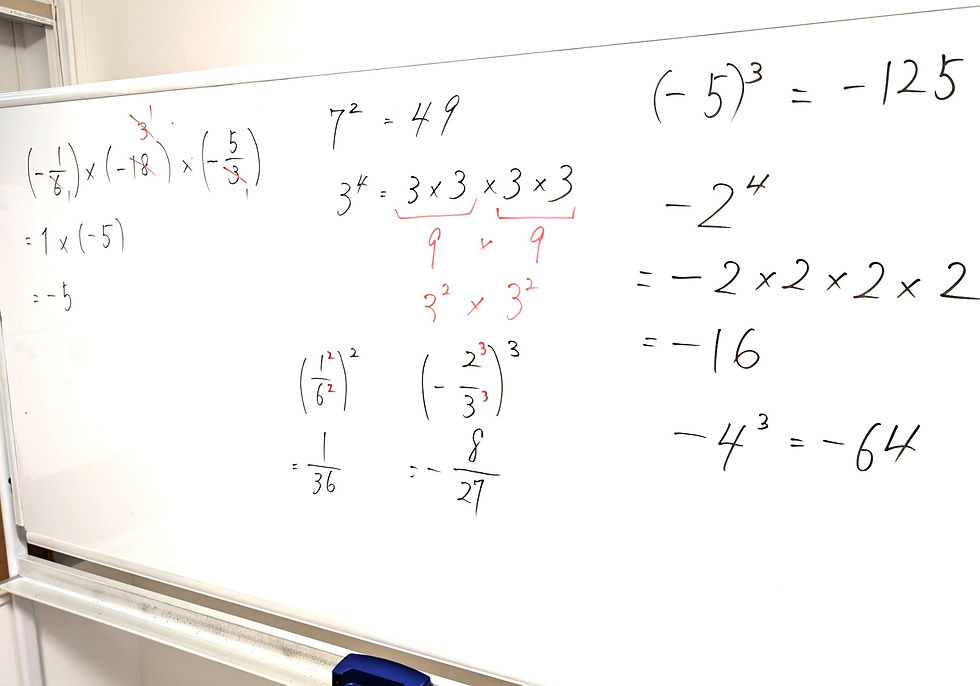 (-1/6) × (-18) × (-5/3)
3 1
1 1
= 1 × (-5)
= -5
7² = 49
3⁴ = 3 × 3 × 3 × 3
9 × 9
3² × 3²
(1²/6²)²
= 1/36
(-2³/3³)³
= -8/27
(-5)³ = -125
-2⁴
= -2 × 2 × 2 × 2
= -16
-4³ = -64